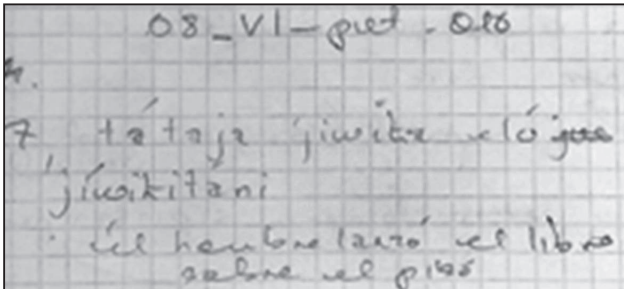 08-VI-pret-016
4.
7 tátaja jiwika eló
jíwikitani
el hombre lanzó el libro
sobre el piso